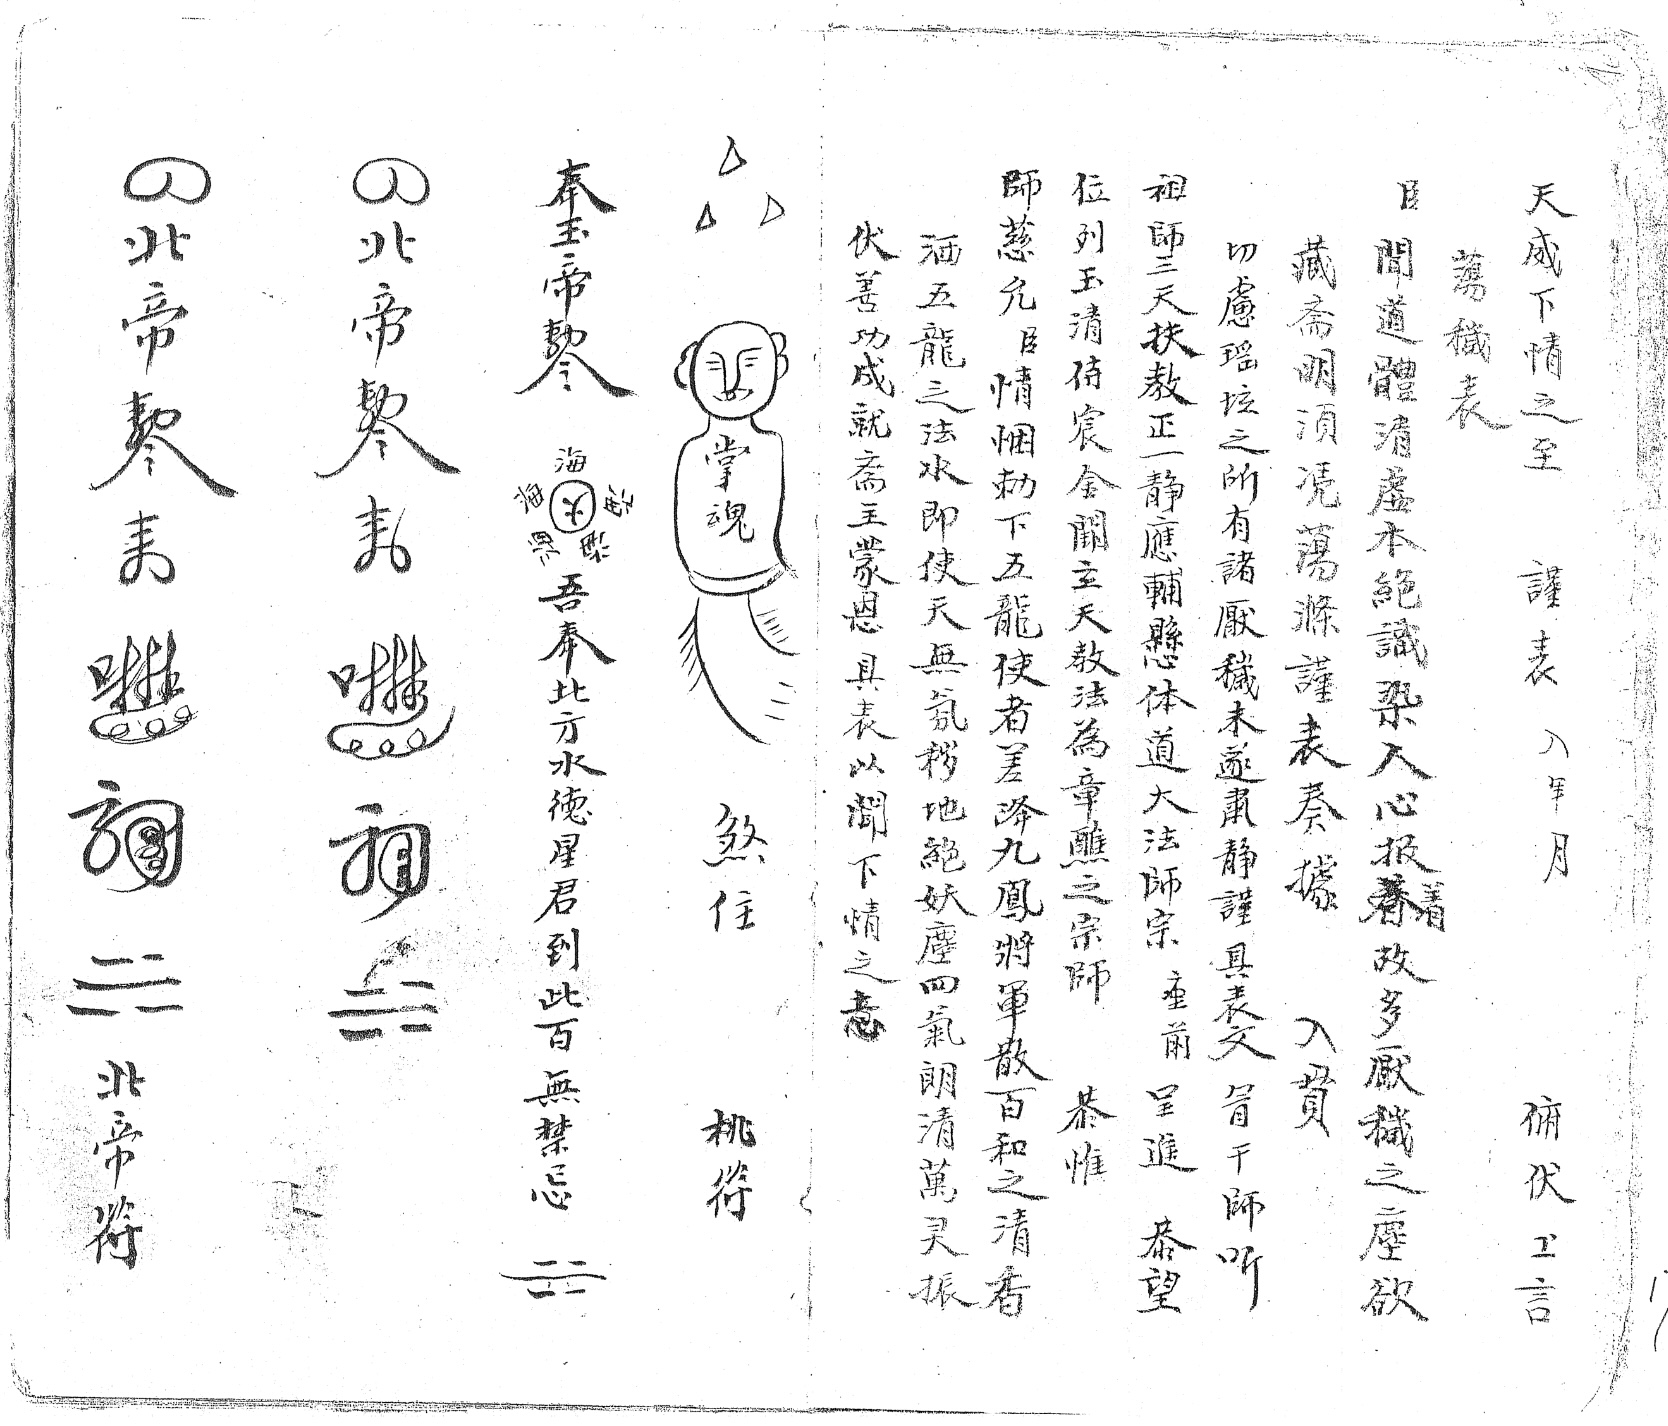 天威下情之至 謹表 入年月 俯伏上言
蕩穢表
臣聞道體清虛本絕識染入心报着故多厭穢之塵欲
藏斋明湏凴蕩滌謹表奏據 入貫
切慮瑶坛之所有諸厭穢未遂肅静謹具表文 冐干師听
祖師三天扶教正一静應輔懸体道大法師宗 座前 呈進 恭望
位列玉清侍宸金闕玄天教法為章醮之宗師 恭惟
師慈允臣情悃勑下五龍使者差降九鳳將軍散百和之清香
洒五龍之法水即使天無氛秽地絕妖塵四氣朗清萬灵振
伏善功成就斋主蒙恩具表以聞下情之意
掌魂
煞住 桃符
奉玉帝
海 海 海 海 海 火
吾奉北方水德星君到此百無禁忌
北帝
北帝
北帝符